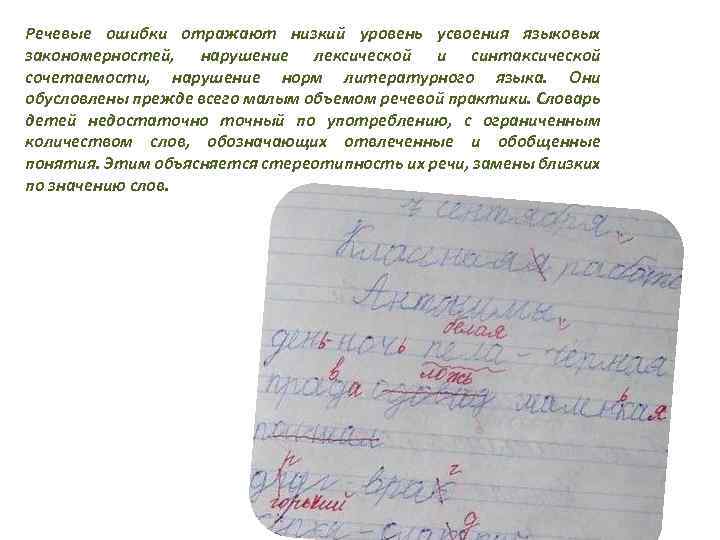 Речевые ошибки отражают низкий уровень усвоения языковых
закономерностей, нарушение лексической и синтаксической
сочетаемости, нарушение норм литературного языка. Они
обусловлены прежде всего малым объемом речевой практики. Словарь
детей недостаточно точный по употреблению, с ограниченным
количеством слов, обозначающих отвлеченные и обобщенные
понятия. Этим объясняется стереотипность их речи, замены близких
по значению слов.
7 сентября.
Класнная работа
Антонимы.
белая
день-ночь пела - чёрная
в ложь ь
прада маленкая
г
враг
горький